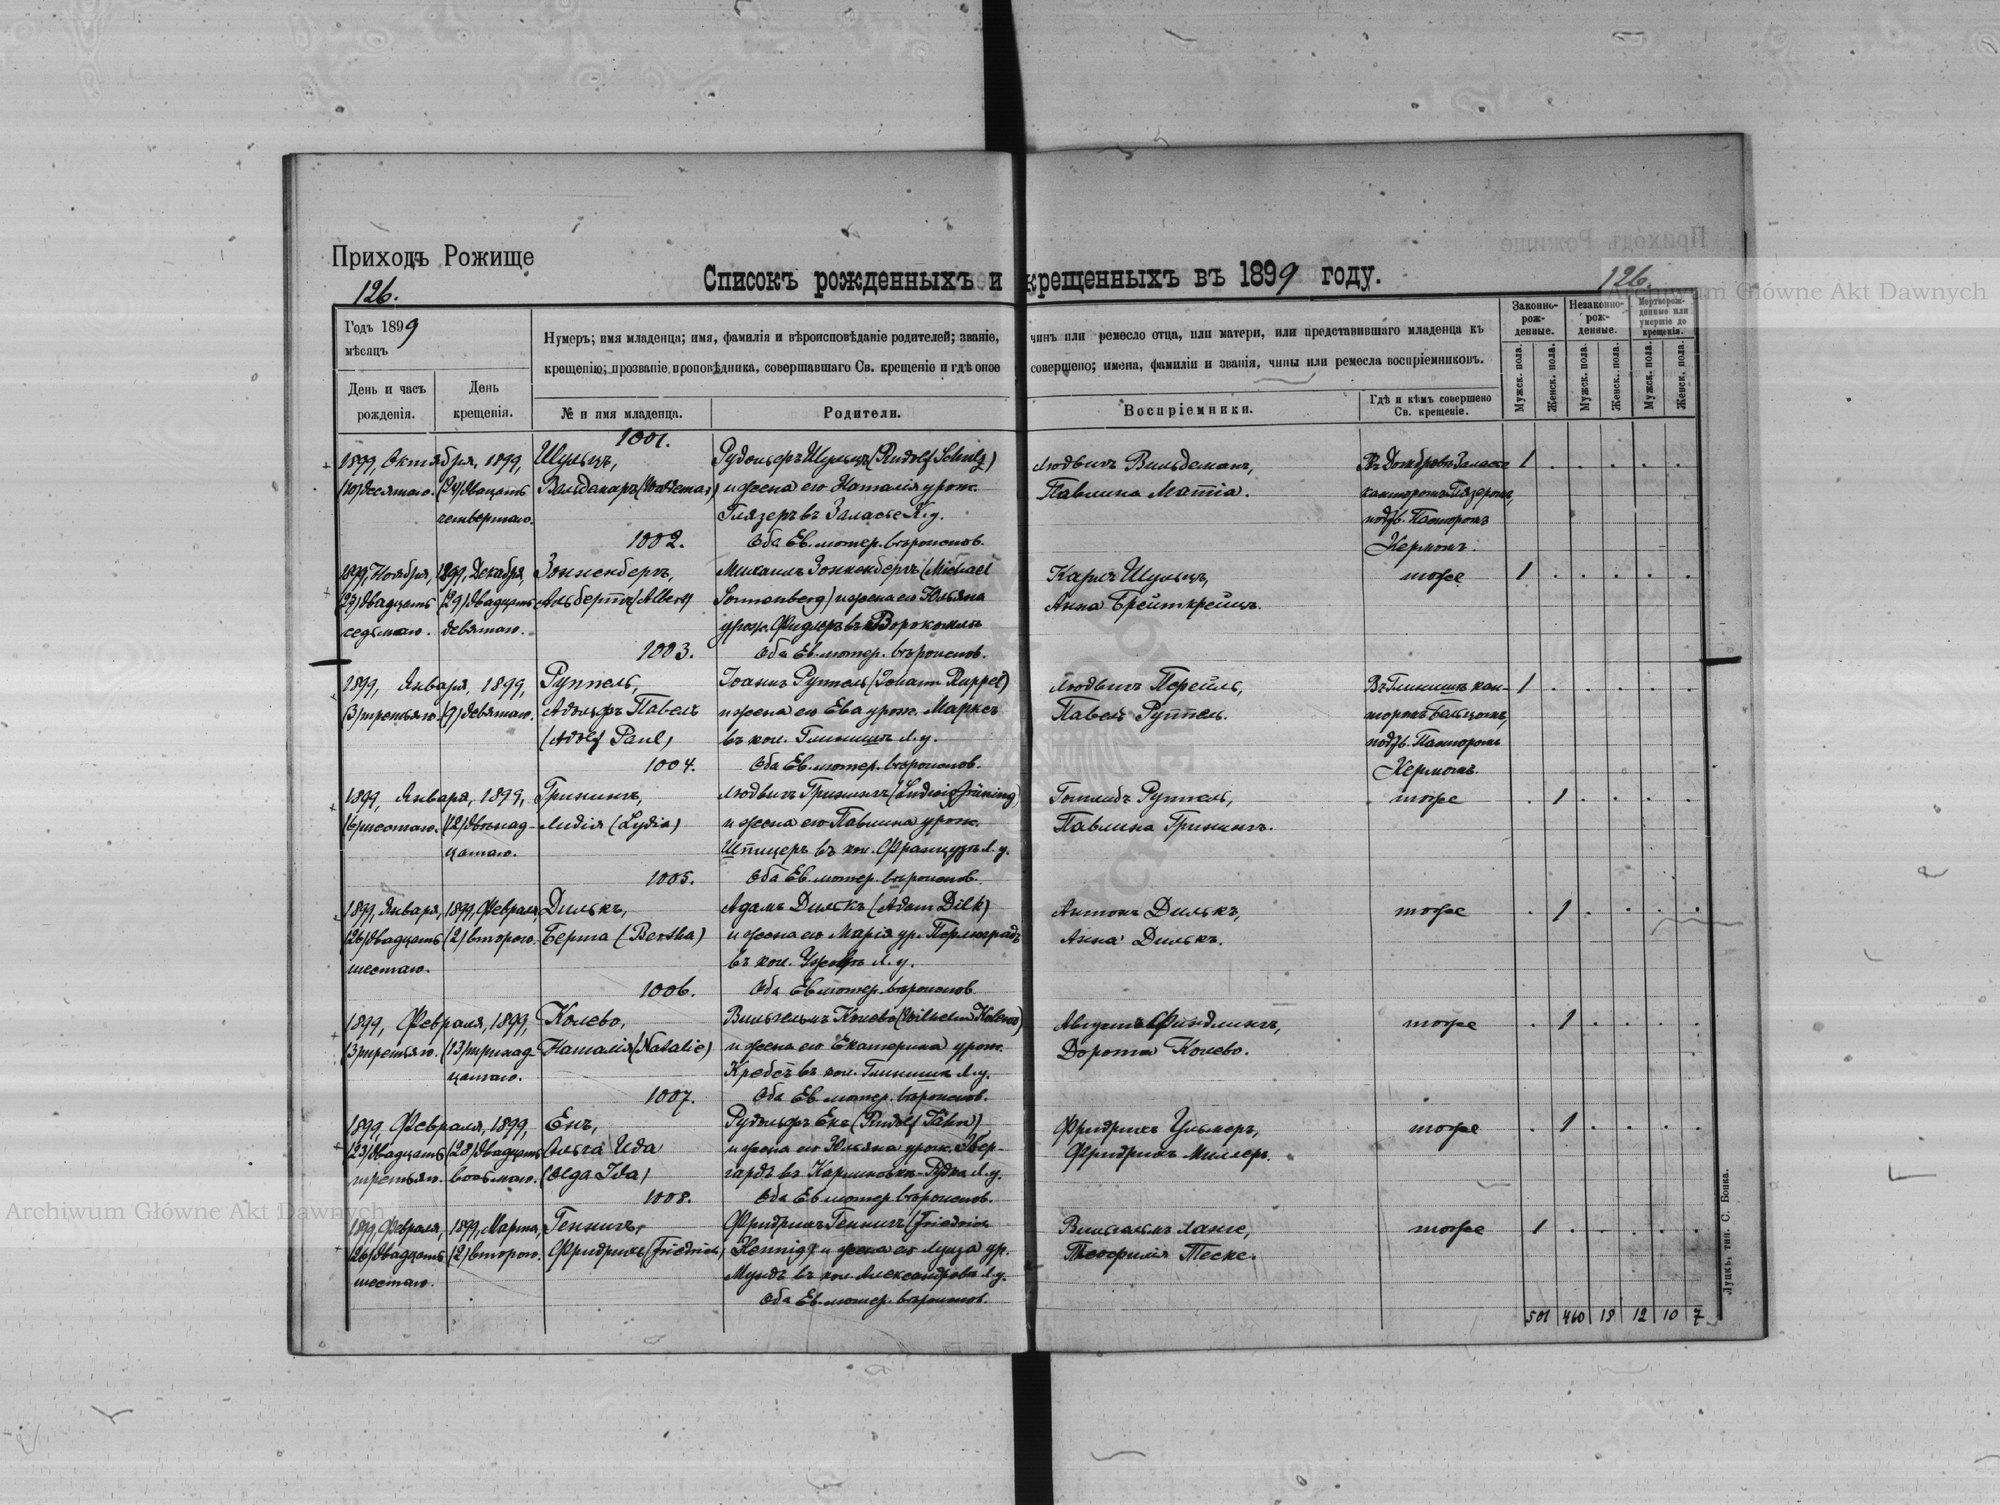 Приходъ Рожище
126.
Списокъ рожденныхъ и крещенныхъ въ 1899 году.
126.
Archiwum Główne Akt Dawnych
Годъ 1899
мѣсяцъ
День и часъ рожденія.
День крещенія.
Нумеръ; имя младенца; имя, фамилія и вѣроисповѣданіе родителей; званіе, чинъ или ремесло отца, или матери, или представившаго младенца къ
крещенію; прозваніе проповѣдника, совершавшаго Св. крещеніе и гдѣ оное совершено; имена, фамиліи и званія, чины или ремесла воспріемниковъ.
№ и имя младенца.
Родители.
Воспріемники.
Гдѣ и кѣмъ совершено Св. крещеніе.
Законно-рож-денные.
Незаконно-рож-денные.
Мертворож-денные или умершіе до крещенія.
Мужск. пола.
Женск. пола.
Мужск. пола.
Женск. пола.
Мужск. пола.
Женск. пола.
1001.
1899, Октября, 1899, Шульцъ, Рудольфъ Шульцъ (Rudolf Schulz) Людвигъ Вильдеманъ, 1
(10) десятаго. (24) двадцать Вольдемаръ (Woldemar) и жена его Наталія урож. Павлина Матіа.
четвертаго. Глязеръ въ Л. у. подтв. Пасторомъ
1002. Оба Ев. лютер. вѣроиспов. Кермомъ.
1899, Ноября, 1899, Декабря, Зонненбергъ, Михаилъ Зонненбергъ (Michael Карлъ Шульцъ, тоже 1
(27) двадцать (29) двадцать Альбертъ (Albert) Sonnenberg) и жена его Юльяна Анна Брейткрейцъ.
седьмаго. девятаго. урож. Фидлеръ въ
1003. Оба Ев. лютер. вѣроиспов.
1899, Января, 1899, Руппель, Іоаннъ Руппель (Johann Ruppel) Людвигъ Въ Глинищѣ кан- 1
(3) третьяго. (9) девятаго. Адольфъ Павелъ и жена его Ева урож. Марксъ Павелъ Руппель. торомъ
(Adolf Paul) въ кол. Глинищѣ Л. у. подтв. Пасторомъ
1004. Оба Ев. лютер. вѣроиспов. Кермомъ.
1899, Января, 1899, Грининъ, Людвигъ Грининъ (Ludwig Grüning) Готлибъ Руппель, тоже 1
(6) шестаго. (12) двѣнад- Лидія (Lydia) и жена его Павлина урож. Павлина Грининъ.
цатаго. Шпицеръ въ кол. Л. у.
1005. Оба Ев. лютер. вѣроиспов.
1899, Января, 1899, Февраля Дилькъ, Адамъ Дилькъ (Adam Dilk) Антонъ Дилькъ, тоже 1
(26) двадцать (2) второго. Берта (Bertha) и жена его Марія ур. Анна Дилькъ.
шестаго. въ кол. Л. у.
1006. Оба Ев. лютер. вѣроиспов.
1899, Февраля, 1899, Колево, Вильгельмъ Колево (Wilhelm Kolewo) Августъ тоже 1
(3) третьяго. (13) тринад- Наталія (Natalie) и жена его Екатерина урож. Дорота Колево.
цатаго. Кребсъ въ кол. Глинищѣ Л. у.
1007. Оба Ев. лютер. вѣроиспов.
1899, Февраля, 1899, Енъ, Рудольфъ Енъ (Rudolf Jähn) Фридрихъ Ульмеръ, тоже 1
(23) двадцать (28) двадцать Ольга Ида и жена его Юльяна урож. Эвер- Фридрихъ Миллеръ.
третьяго. восьмаго. (Olga Ida) гардъ въ Л. у.
1008. Оба Ев. лютер. вѣроиспов.
1899, Февраля, 1899, Марта, Геннигъ, Фридрихъ Геннигъ (Friedrich Вильгельмъ Ланге, тоже 1
(26) двадцать (2) второго. Фридрихъ (Friedrich) Hennig) и жена его Луиза ур. Теофилія Теске.
шестаго. Мундъ въ кол. Л. у.
Оба Ев. лютер. вѣроиспов.
501 460 18 12 10 7
Луцкъ, тип. С. Бонка.
Archiwum Główne Akt Dawnych